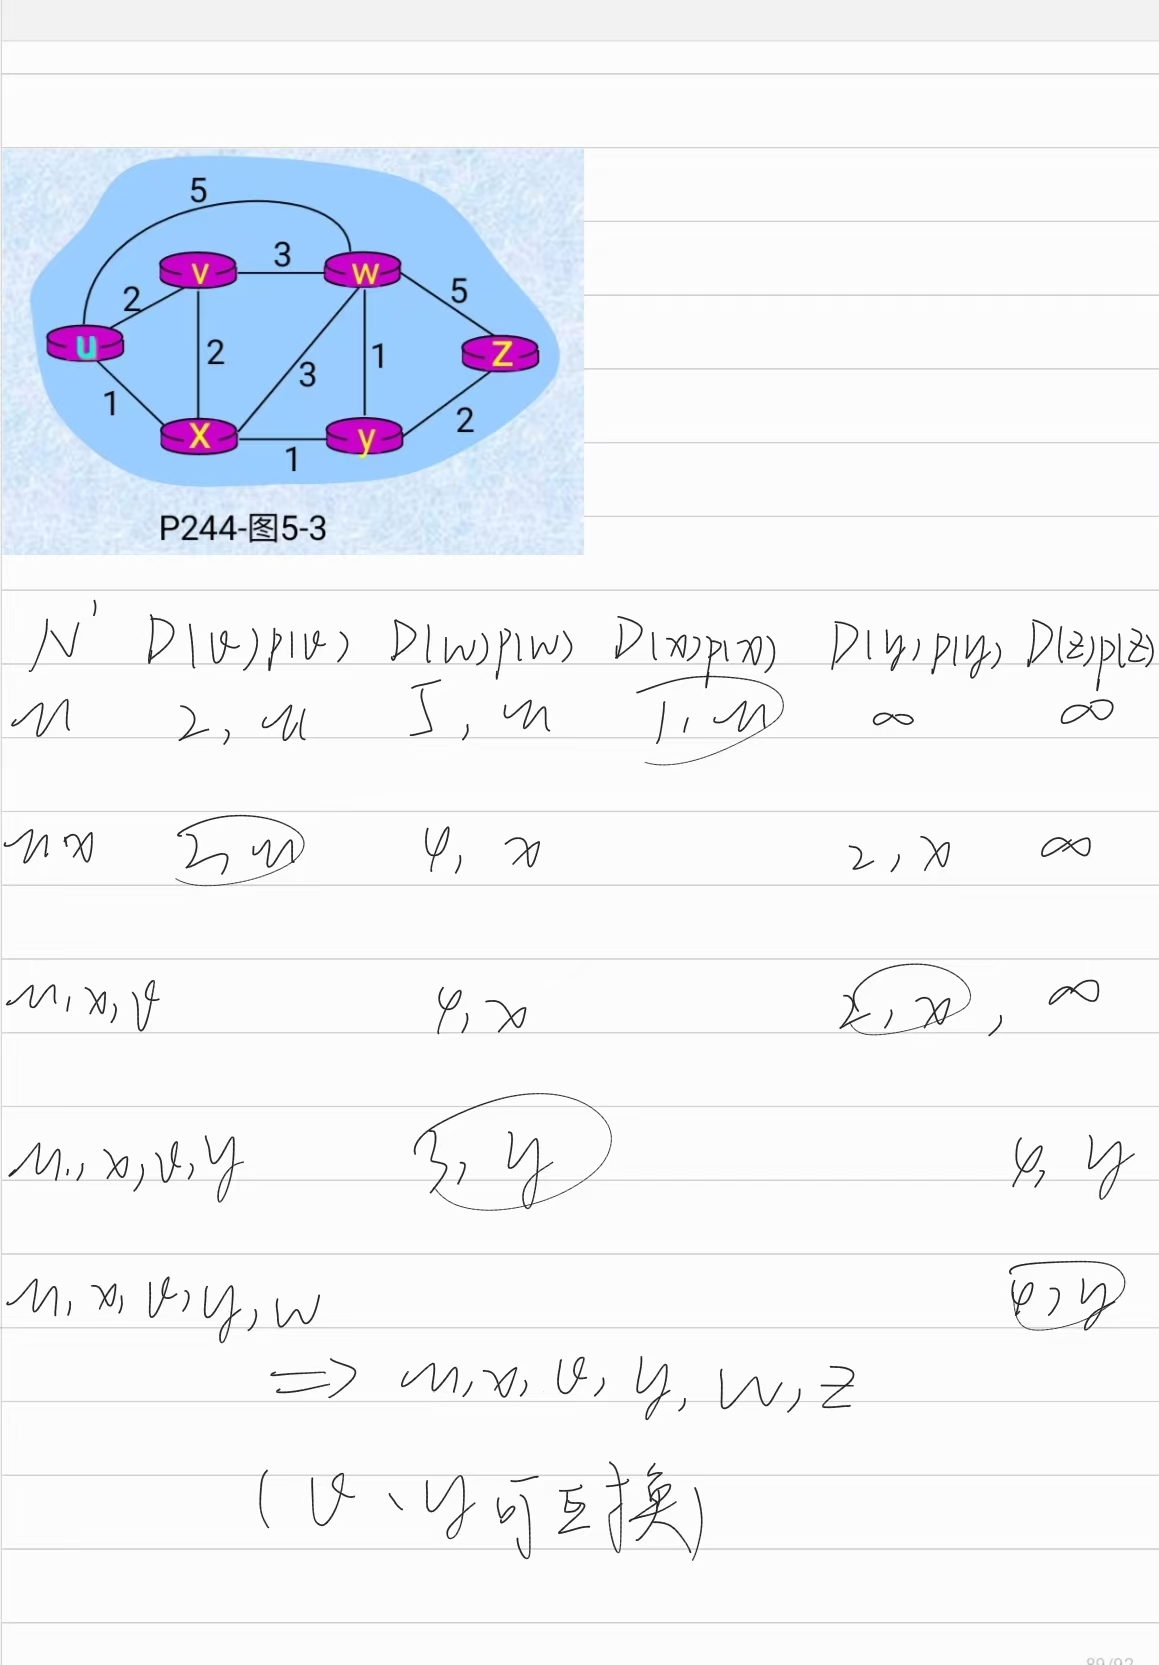 5
v 3 w
2 5
u 2 1 z
3
1 2
x 1 y
P244-图5-3
N' D(v)p(v) D(w)p(w) D(x)p(x) D(y)p(y) D(z)p(z)
u 2,u 5,u 1,u ∞ ∞
ux 2,u 4,x 2,x ∞
u,x,v 4,x 2,x, ∞
u,x,v,y 3,y 4,y
u,x,v,y,w 4,y
⇒ u,x,v,y,w,z
(v、y可互换)
89/92